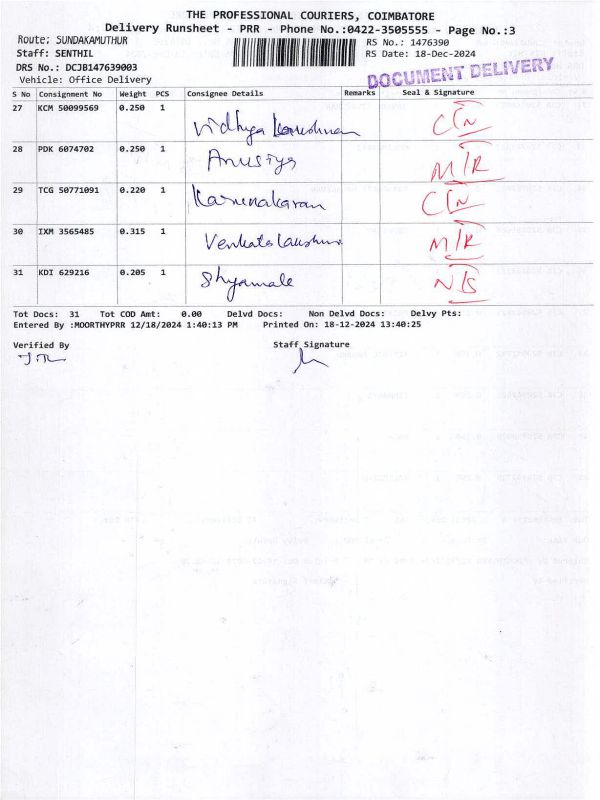 THE PROFESSIONAL COURIERS, COIMBATORE
Delivery Runsheet - PRR - Phone No.:0422-3505555 - Page No.:3
Route: SUNDAKAMUTHUR RS No.: 1476390
Staff: SENTHIL RS Date: 18-Dec-2024
DRS No.: DCJB147639003
Vehicle: Office Delivery
DOCUMENT DELIVERY
S No Consignment No Weight PCS Consignee Details Remarks Seal & Signature
27 KCM 50099569 0.250 1 Vidhya C/N
28 PDK 6074702 0.250 1 Anusiya M/R
29 TCG 50771091 0.220 1 Karunakaran C/N
30 IXM 3565485 0.315 1 M/R
31 KDI 629216 0.205 1 Shyamale N/S
Tot Docs: 31 Tot COD Amt: 0.00 Delvd Docs: Non Delvd Docs: Delvy Pts:
Entered By :MOORTHYPRR 12/18/2024 1:40:13 PM Printed On: 18-12-2024 13:40:25
Verified By Staff Signature